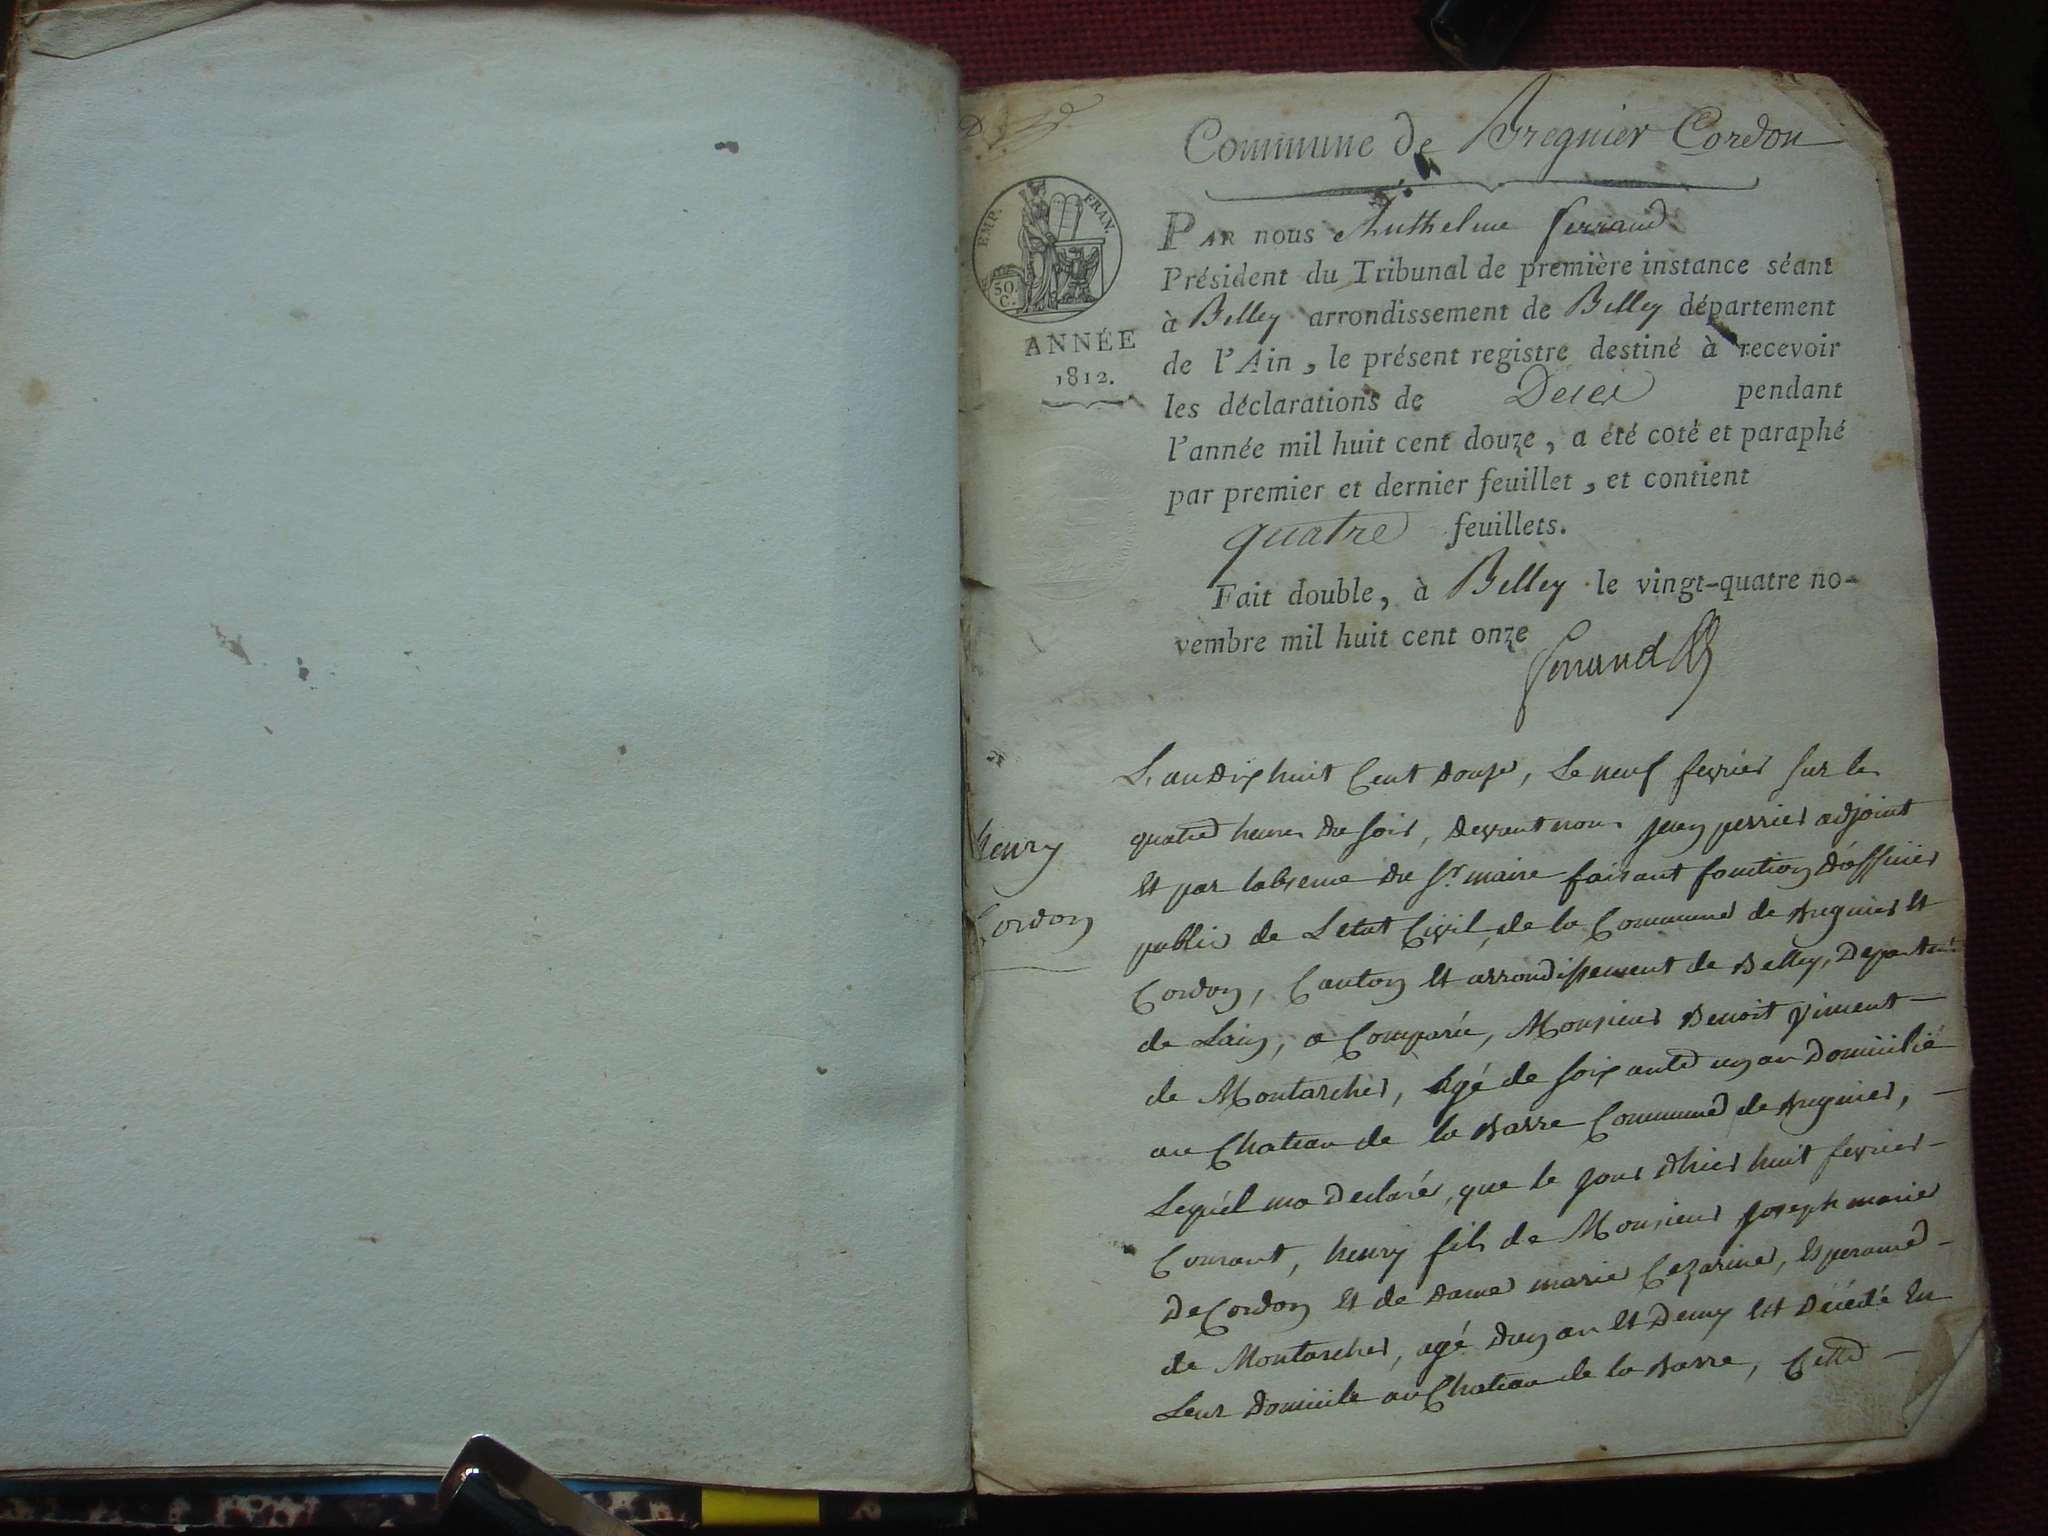 Commune de Bregnier Cordon
EMP. FRAN.
50. C.
ANNÉE
1812.
PAR nous Anthelme ferrand
Président du Tribunal de première instance séant
à Belley arrondissement de Belley département
de l'Ain, le présent registre destiné à recevoir
les déclarations de Décès pendant
l'année mil huit cent douze, a été coté et paraphé
par premier et dernier feuillet, et contient
quatre feuillets.
Fait double, à Belley le vingt-quatre no-
vembre mil huit cent onze
ferrand
henry
Cordon
L'an dix huit Cent douze, Le neuf fevrier sur les
quatre heures du soir, devant nous jean perrier adjoint
Et par labsence du Sr. maire faisant fonction d'officier
public de Letat Civil, de la Commune de Bregnier Et
Cordon, Canton Et arrondissement de Belley, Departemt
de Lain, a Comparu, Monsieur Benoit yiment
de Montarcher, Agé de soixante un an Domicilié
au Chateau de la Barre Commune de Bregnier,
Lequel ma declaré, que le jour dhier huit fevrier
Courant, henry fils de Monsieur joseph marie
De Cordon Et de Dame marie Cezarine, Esperance
de Montarcher, agé d'un an Et Demy Est Décédé En
Leur Domicile au Chateau de la Barre, Cette